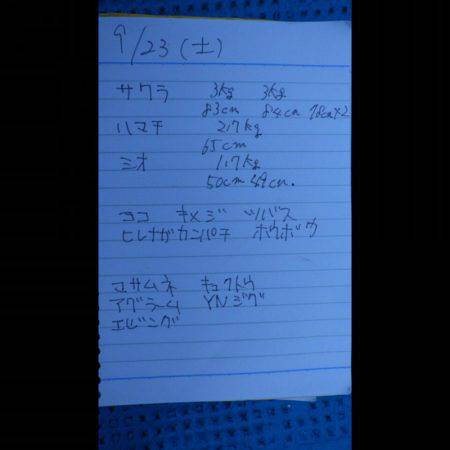 9/23(土)
サワラ 3kg 3kg
83cm 84cm 78cm×2
ハマチ 2.17kg
65cm
ミオ 1.17kg
50cm 49cm.
ヨコ キメジ ツバス
ヒレナガカンパチ ホウボウ
マサムネ
アグラーム YNジグ
エビング